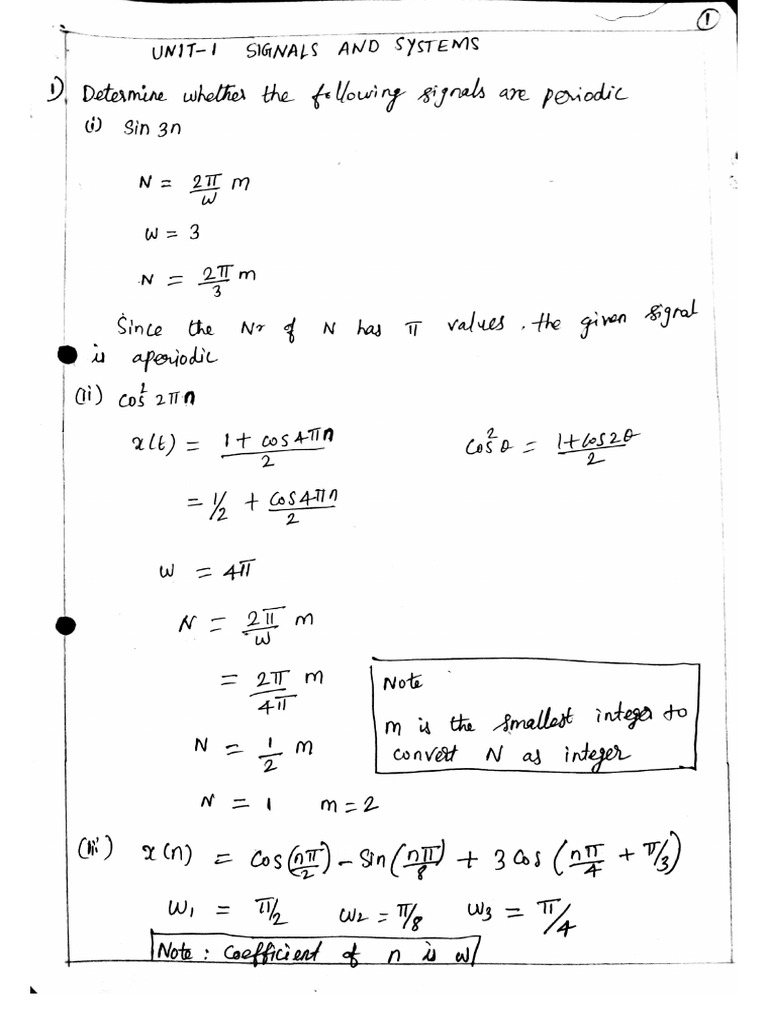 1
UNIT-1 SIGNALS AND SYSTEMS
1) Determine whether the following signals are periodic
(i) Sin 3n
N = 2π/ω m
ω = 3
N = 2π/3 m
Since the Nr of N has π values, the given signal
is aperiodic
(ii) cos² 2πn
x(t) = 1 + cos 4πn / 2    cos²θ = 1+cos2θ / 2
= 1/2 + cos4πn / 2
ω = 4π
N = 2π/ω m
= 2π/4π m
N = 1/2 m
N = 1  m = 2
Note
m is the smallest integer to
convert N as integer
(iii) x(n) = cos(nπ/2) - sin(nπ/8) + 3 cos(nπ/4 + π/3)
ω₁ = π/2  ω₂ = π/8  ω₃ = π/4
Note : Coefficient of n is ω